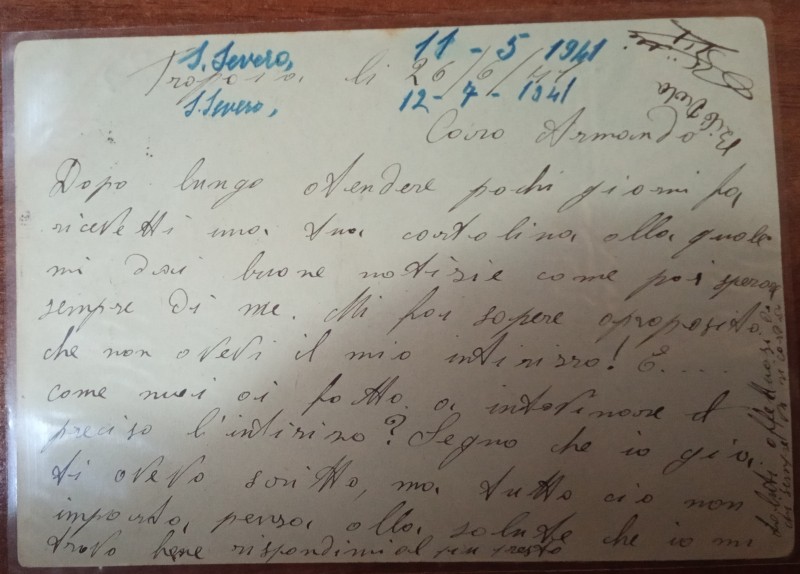 S. Severo, 11 - 5 1941
li 26/6/41
S. Severo, 12 - 7 - 1941
Caro Armando
Dopo lungo atendere pochi giorni fa
ricevetti una tua cartolina alla quale
mi dai buone notizie come poi spera
sempre di me. Mi fai sapere aproposito
che non avevi il mio intirizzo! E.....
come mai ai fatto a intovinare il
preciso l'intirizo? Segno che io gia
ti avevo scritto, ma tutto ciò non
importa, pensa alla salute che io mi
trovo bene rispondimi al piu presto
Saluti affettuosi